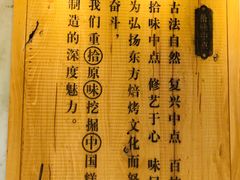 拾味中点
古法自然 复兴中点 百
拾味中点 修艺于心 味
为弘扬东方焙烤文化而努
奋斗，
我们重拾原味挖掘中国糕
制造的深度魅力。